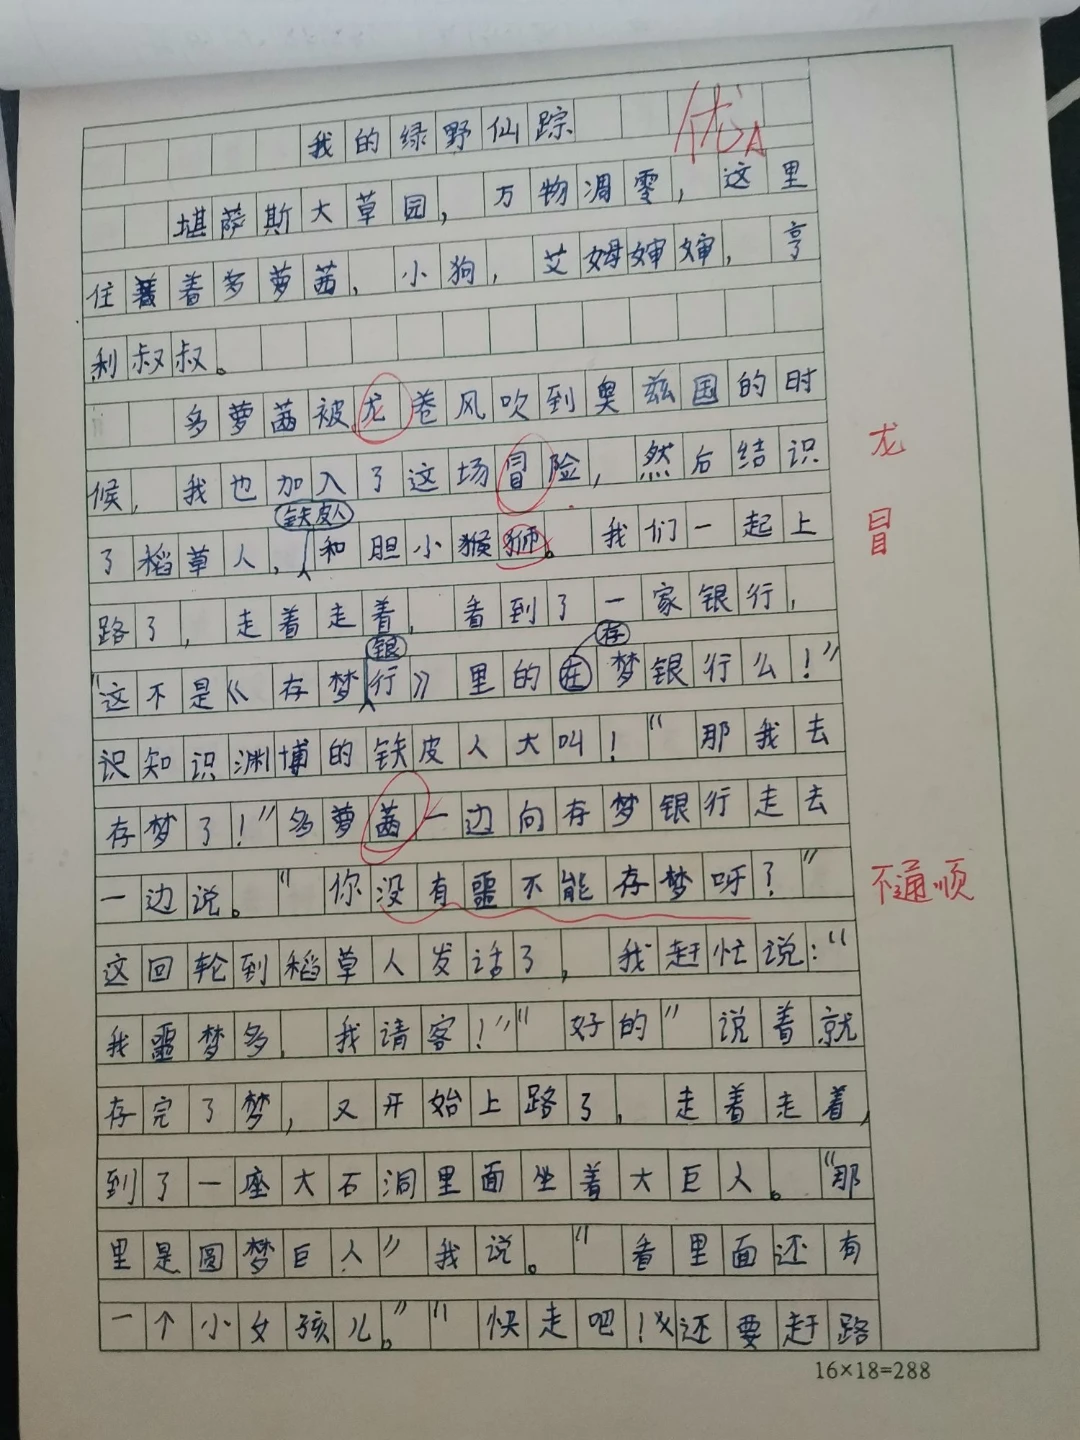 我的绿野仙踪
优A
堪萨斯大草园，万物凋零，这里
住着着多萝茜，小狗，艾姆婶婶，亨
利叔叔。
多萝茜被龙卷风吹到奥兹国的时
候，我也加入了这场冒险，然后结识
龙
冒
铁皮人
了稻草人，和胆小猴狮。我们一起上
路了，走着走着，看到了一家银行，
银
存
“这不是《存梦行》里的在梦银行么！”
识知识渊博的铁皮人大叫！“那我去
存梦了！”多萝茜一边向存梦银行走去
一边说。“你没有噩不能存梦呀？”
不通顺
这回轮到稻草人发话了，我赶忙说：“
我噩梦多，我请客！”“好的”说着就
存完了梦，又开始上路了，走着走着，
到了一座大石洞里面坐着大巨人。“那
里是圆梦巨人”我说。“看里面还有
一个小女孩儿。”“快走吧！还要赶路
16×18=288